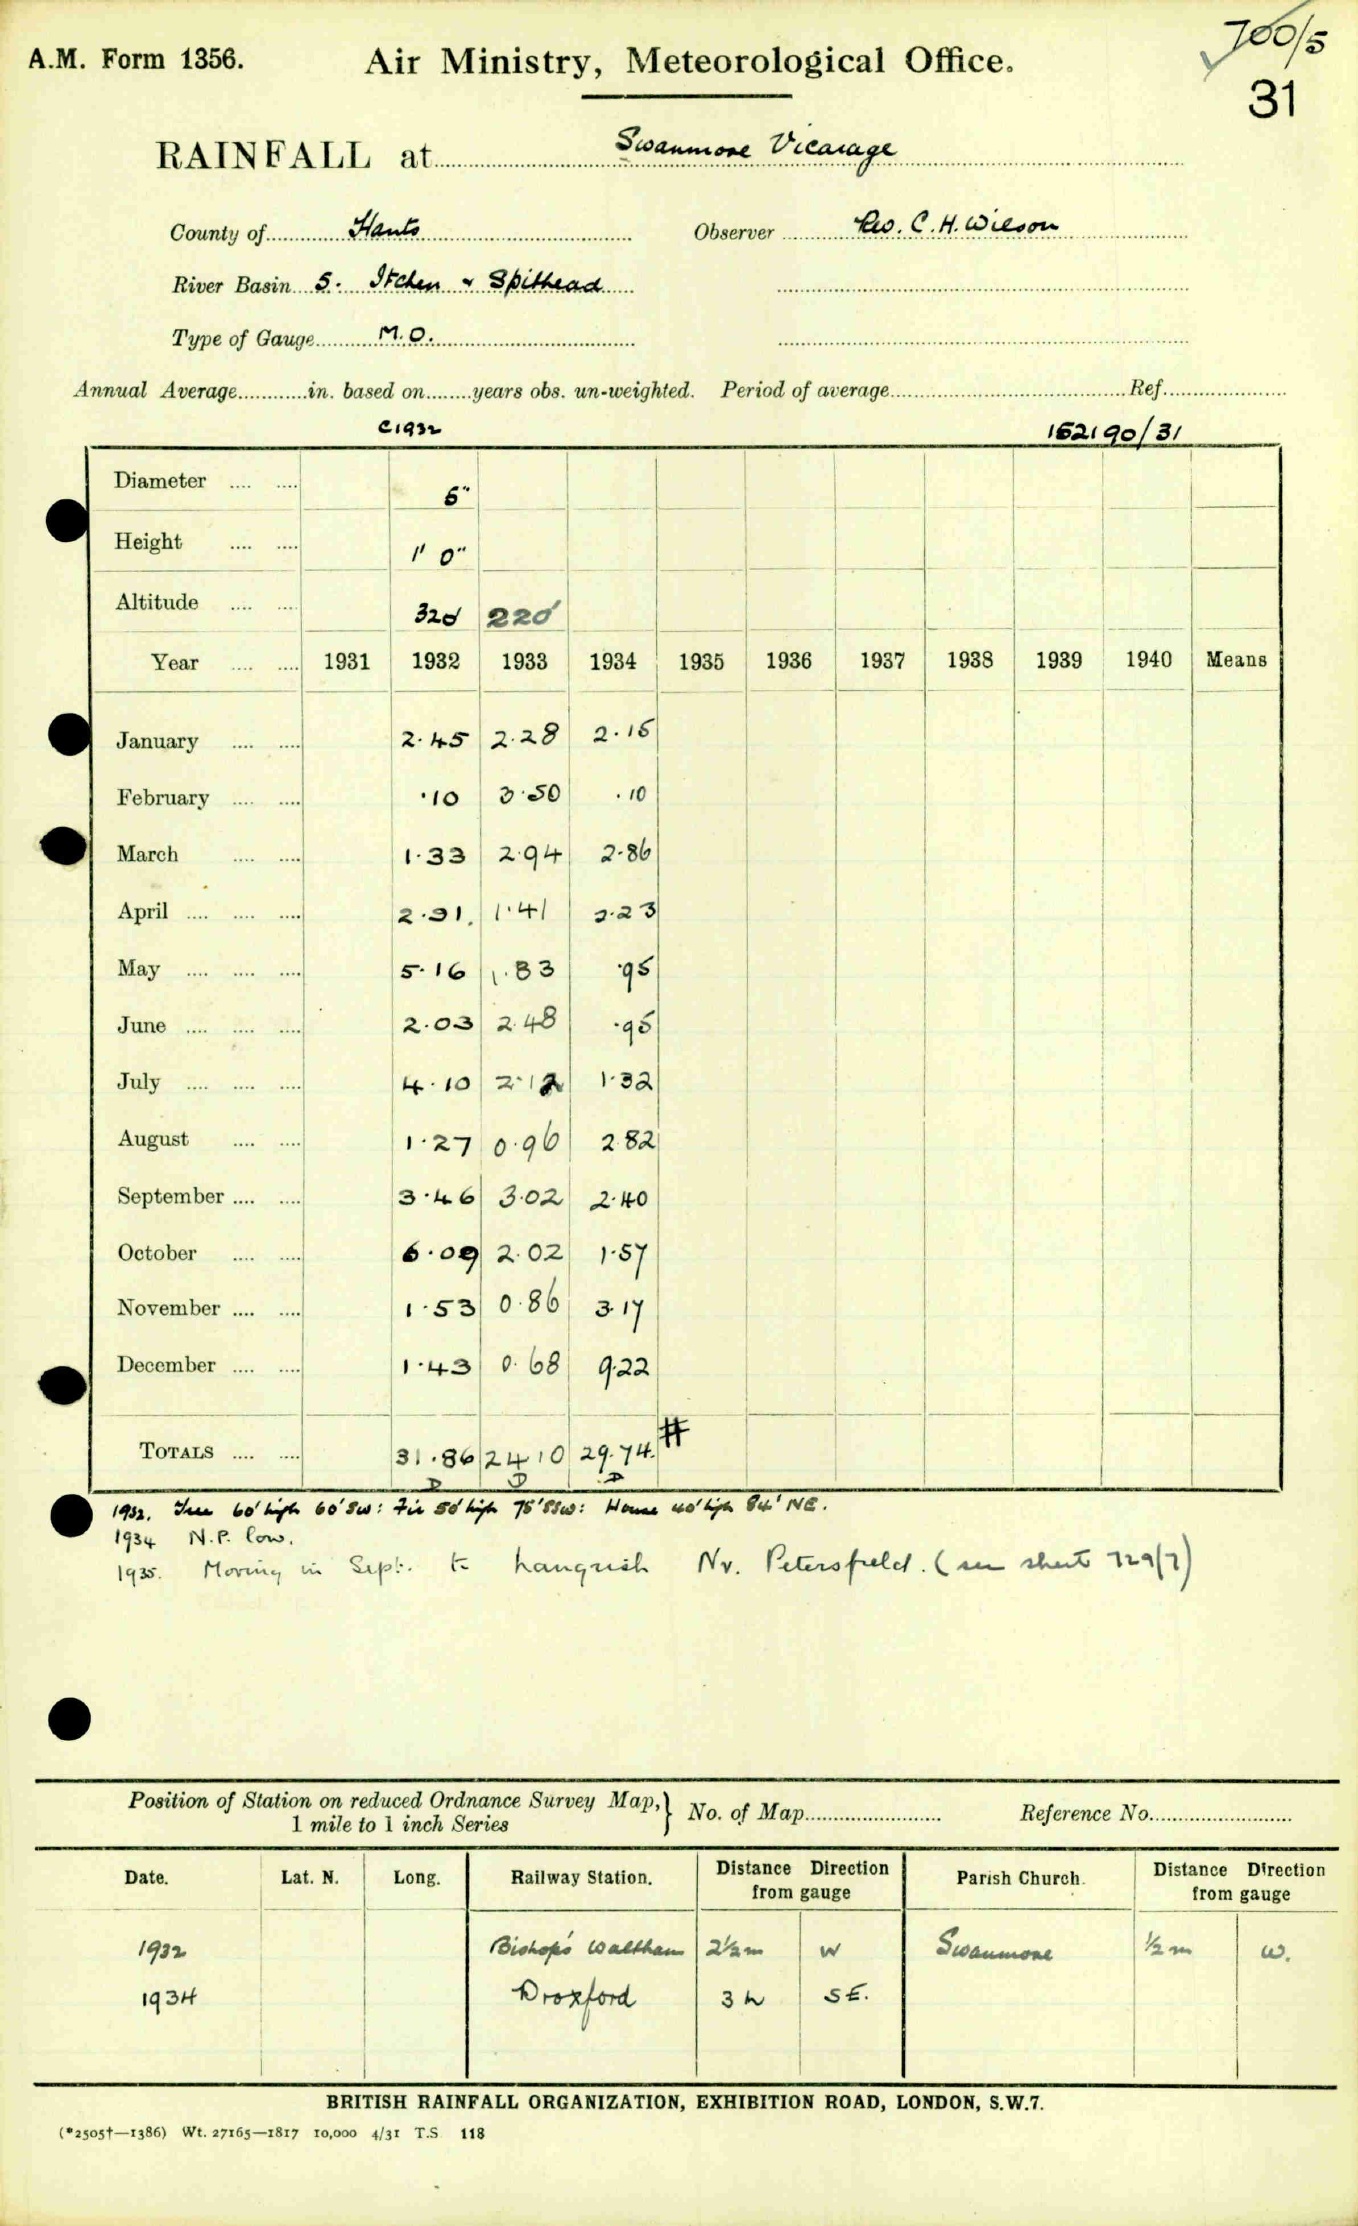 700/5
A.M. Form 1356.
Air Ministry, Meteorological Office.
31
RAINFALL at Swanmore Vicarage
County of Hants Observer Rev. C.H. Wilson
River Basin 5. Itchen & Spithead
Type of Gauge M.O.
Annual Average............in. based on........years obs. un-weighted. Period of average.......... Ref..........
c1932 162190/31
Diameter .... .... 5"
Height .... .... 1' 0"
Altitude .... .... 320' 220'
Year .... .... 1931 1932 1933 1934 1935 1936 1937 1938 1939 1940 Means
January .... .... 2.45 2.28 2.15
February .... .... .10 3.50 .10
March .... .... 1.33 2.94 2.86
April .... .... .... 2.91 1.41 2.23
May .... .... .... 5.16 1.83 .95
June .... .... .... 2.03 2.48 .95
July .... .... .... 4.10 2.12 1.32
August .... .... 1.27 0.96 2.82
September .... .... 3.46 3.02 2.40
October .... .... 6.09 2.02 1.57
November .... .... 1.53 0.86 3.17
December .... .... 1.43 0.68 9.22
TOTALS .... .... 31.86 24.10 29.74 #
D D D
1932. Tree 60' high 60' SW: Fir 50' high 75' SSW: House 40' high 84' NE.
1934 N.P. low.
1935. Moving in Sept. to Langrish Nr. Petersfield. (see sheet 729/7)
Position of Station on reduced Ordnance Survey Map, 1 mile to 1 inch Series } No. of Map.......... Reference No..........
Date. Lat. N. Long. Railway Station. Distance Direction from gauge Parish Church. Distance Direction from gauge
1932 Bishop's Waltham 2½m W Swanmore ½m W.
1934 Droxford 3 SE.
BRITISH RAINFALL ORGANIZATION, EXHIBITION ROAD, LONDON, S.W.7.
(*2505†—1386) Wt. 27165—1817 10,000 4/31 T.S 118